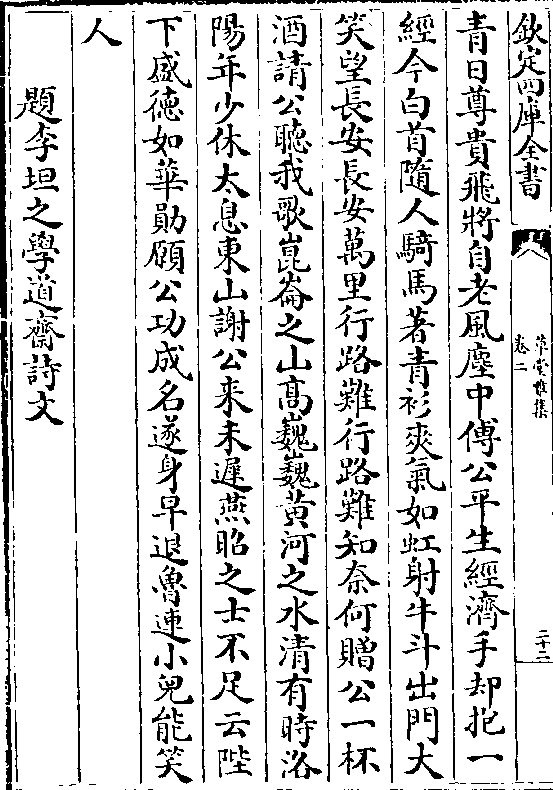 欽定四庫全書
草堂雅集
卷二
二十二
青日尊貴飛將自老風塵中傅公平生經濟手却抱一
經今白首隨人騎馬著青衫爽氣如虹射牛斗出門大
笑望長安長安萬里行路難行路難知奈何贈公一杯
酒請公聽我歌崑崙之山高巍巍黄河之水清有時洛
陽年少休太息東山謝公来未遲燕昭之士不足云陛
下盛德如華勛願公功成名遂身早退魯連小兒能笑
人
題李坦之學道齋詩文